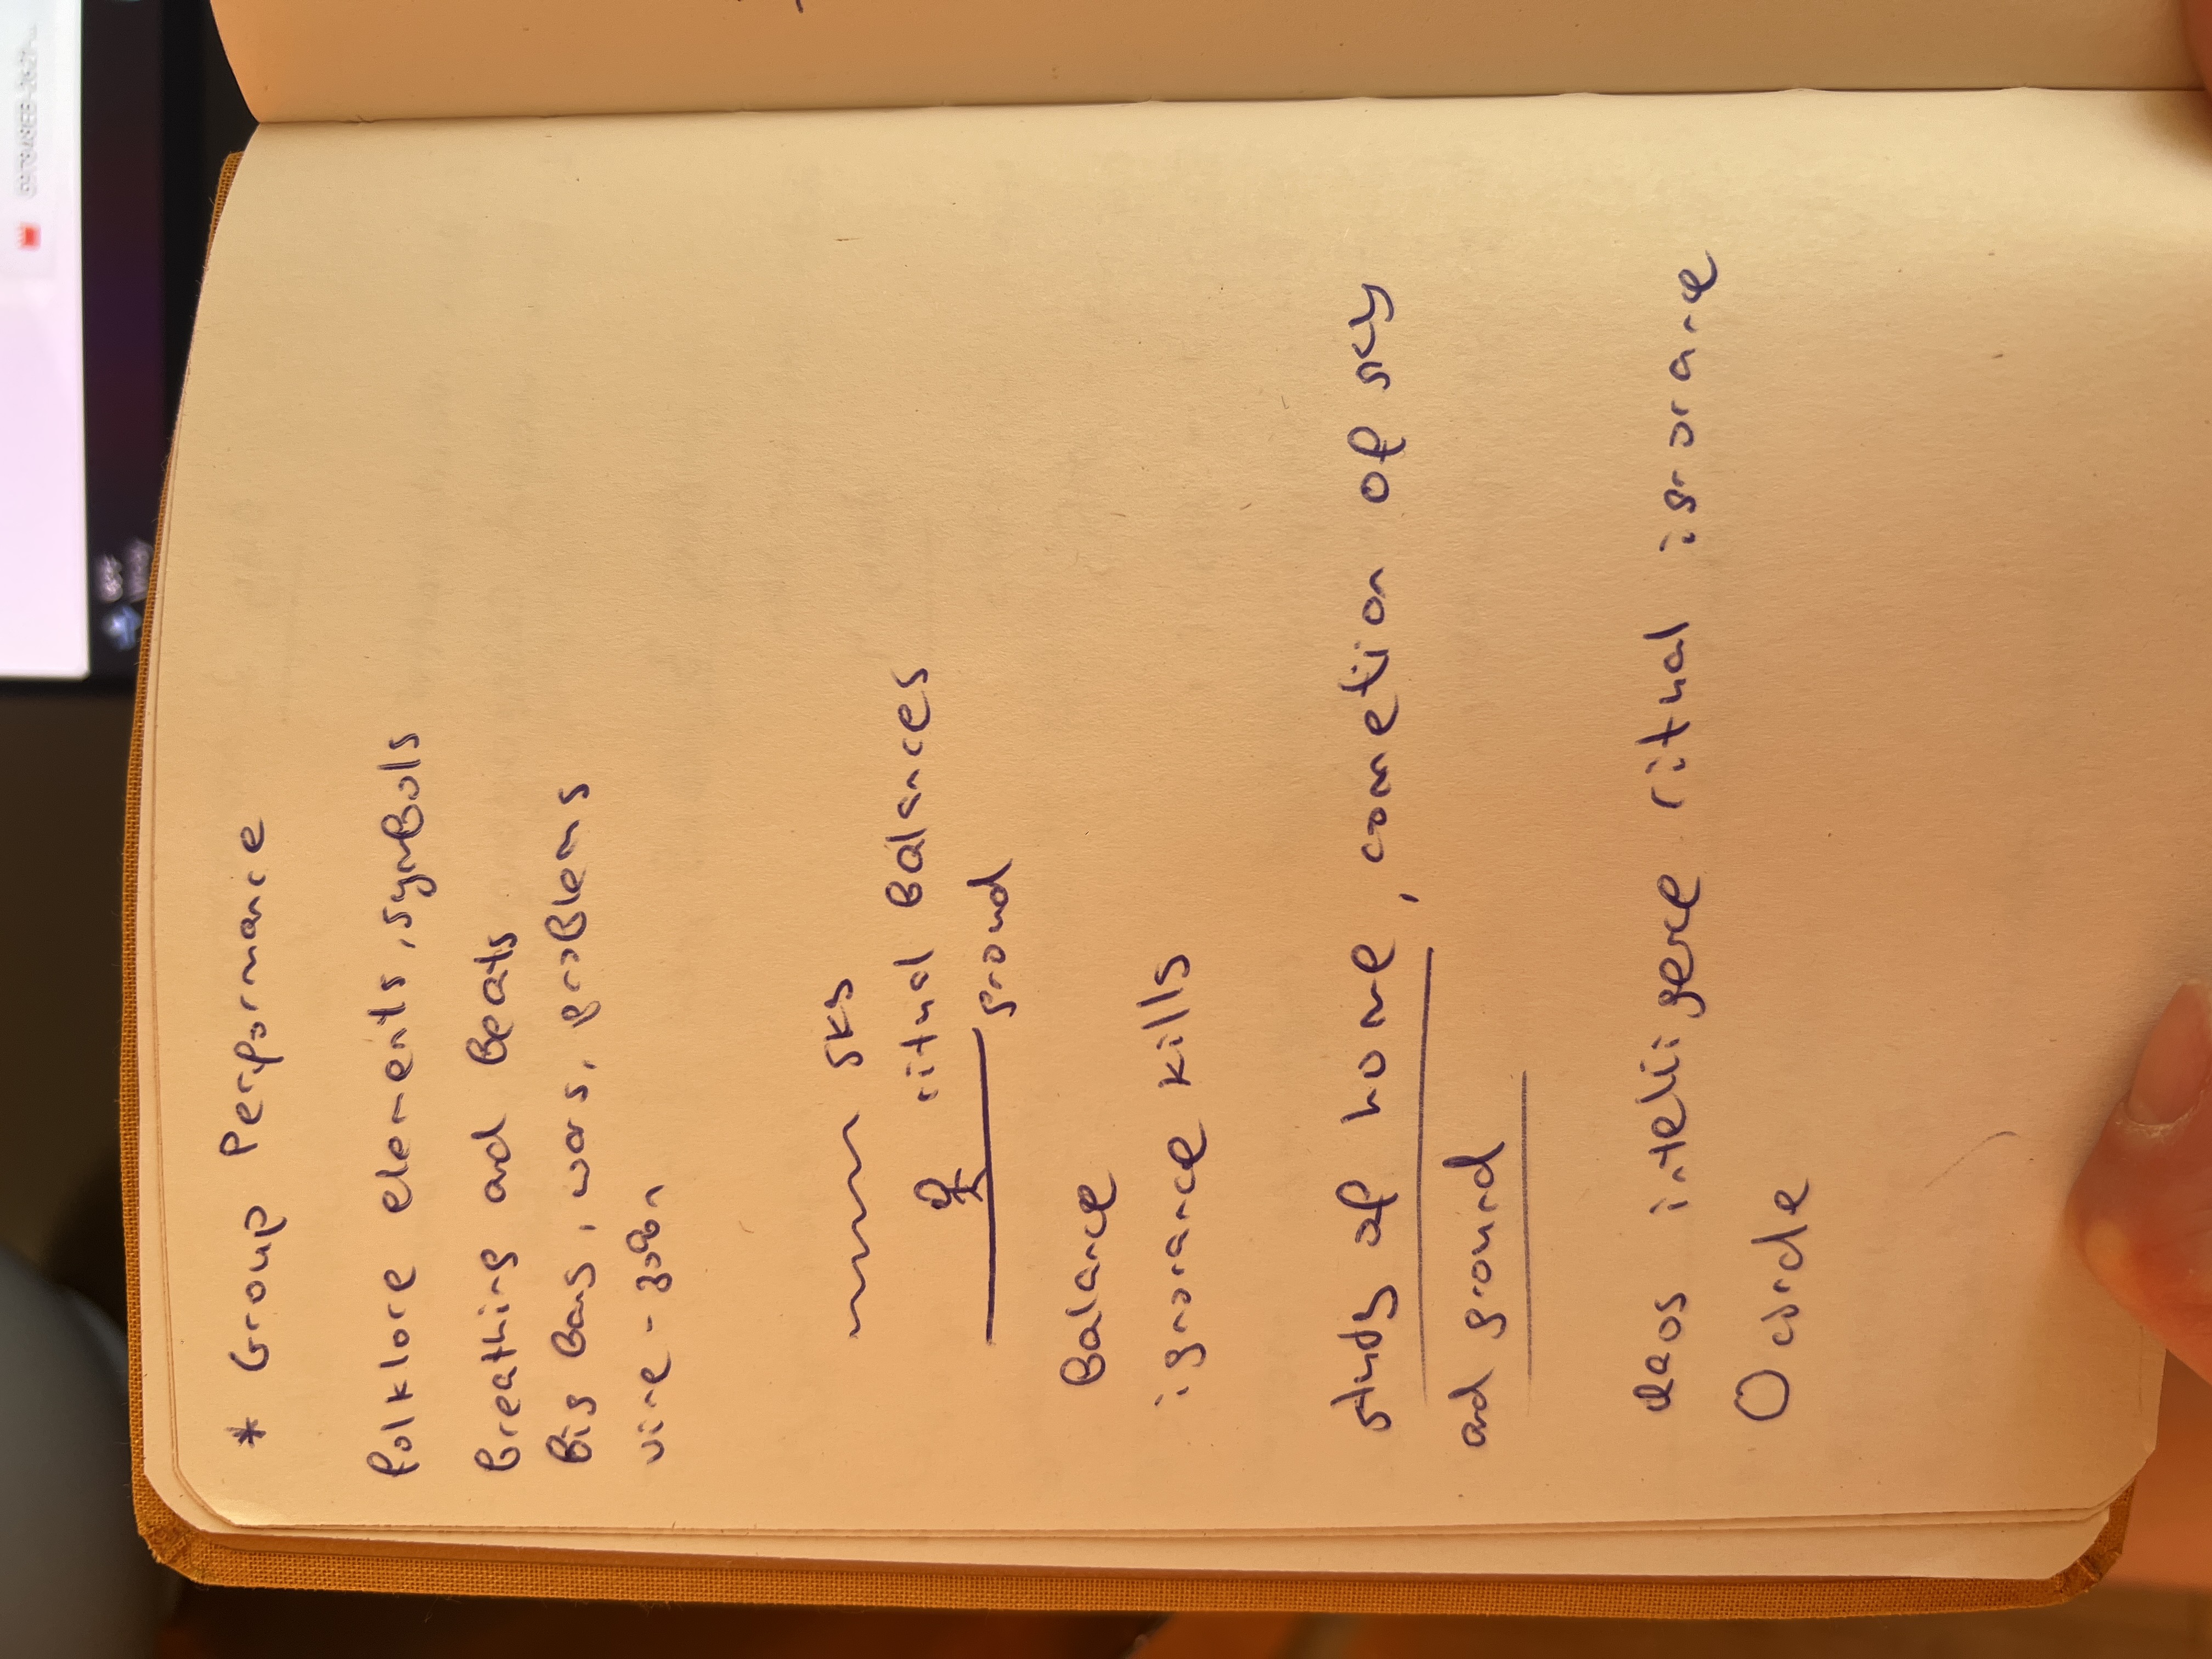 * Group Performance
folklore elements, symbols
Breathing and Beats
Big Bang, wars, problems
vire -
sky
ritual Balances
ground
Balance
ignorance kills
study of home, conection of sky
and ground
inteligence ritual ignorance